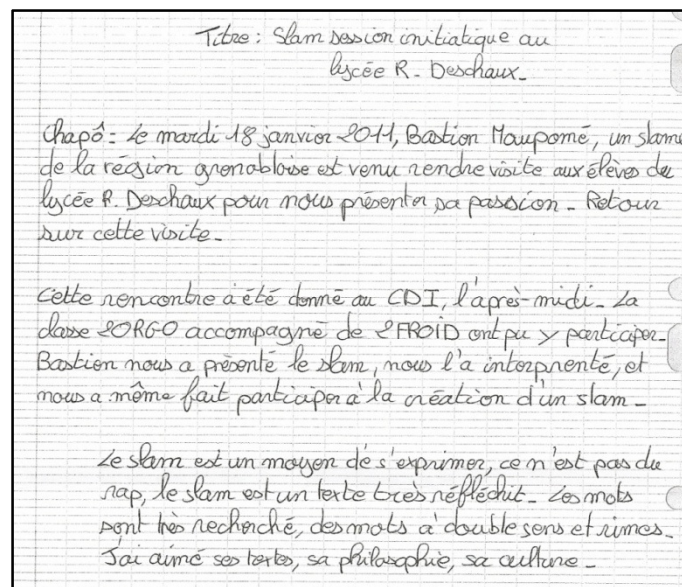 Titre : Slam session initiatique au
lycée R. Deschaux.
Chapô : Le mardi 18 janvier 2011, Bastion Maupomé, un slame
de la région grenobloise est venu rendre visite aux élèves du
lycée R. Deschaux pour nous présenter sa passion - Retour
sur cette visite -
Cette rencontre à été donné au CDI, l'après-midi - La
classe 2ORGO accompagné de 2FROID ont pu y participer -
Bastion nous a présenté le slam, nous l'a interprenté, et
nous a même fait participer à la création d'un slam -
Le slam est un moyen de s'exprimer, ce n'est pas du
rap, le slam est un texte très réfléchit - Les mots
sont très recherché, des mots à double sens et rimes -
J'ai aimé ses textes, sa philosophie, sa culture -